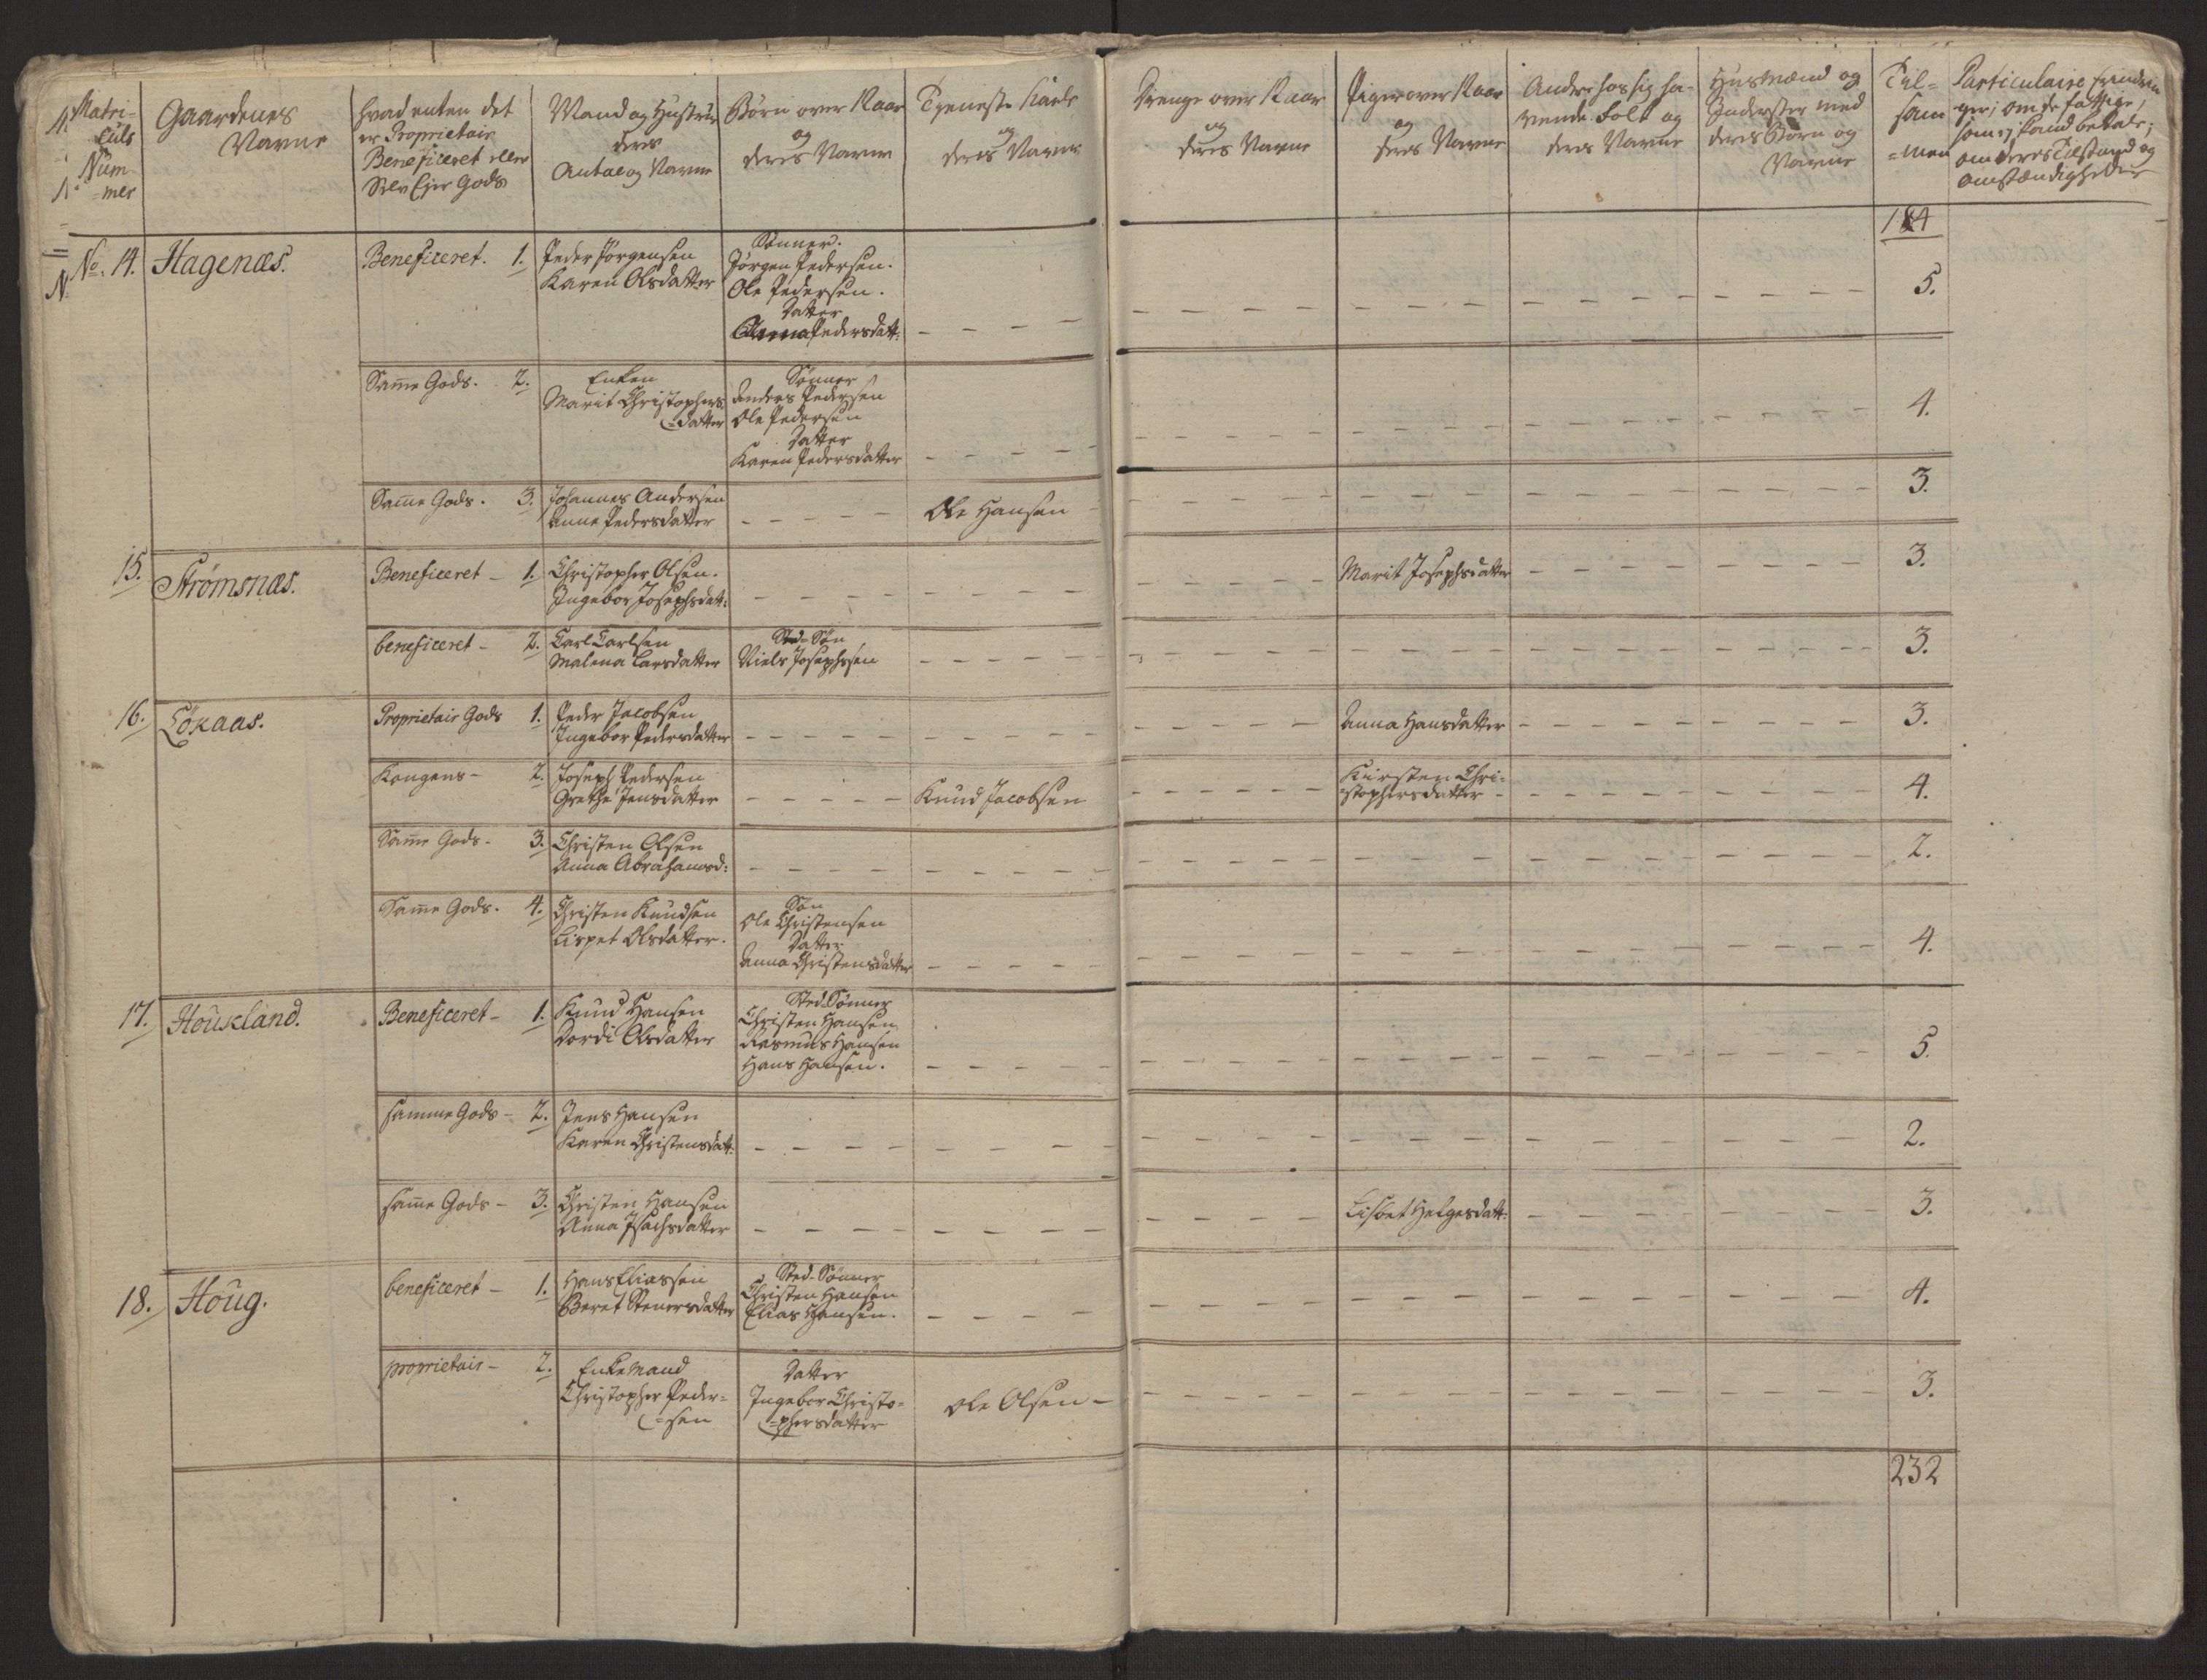 Matri-
culs
Num
mer
Gaardenes
Navne
hvad enten det
er Proprietair
Beneficeret eller
Selv Ejer Gods
Mand og Hustrue
deres
Antal og Navne
Børn over 12 aar
og
deres Navne
Tjeneste Karle
og
deres Navne
Drenge over 12 aar
og
deres Navne
Piger over 12 aar
og
deres Navne
Andre hos sig ha-
vende Folk og
deres Navne
Husmænd og
Inderster med
deres Børn og
Navne
Til-
sam
=men
Particulaire Erindrin
ger; om de fattige,
som ej kand betale;
om deres Tilstand og
omstændigheder
184
No. 14. Hagenæs. Beneficeret. 1. Peder Jørgensen
Karen Olsdatter
Sønner.
Jørgen Pedersen.
Ole Pedersen.
Datter
Anna Pedersdatt:
5.
Same Gods. 2. Enken
Marit Christophers
=datter
Sønner
Anders Pedersen
Ole Pedersen
Datter
Karen Pedersdatter
4.
Same Gods. 3. Johannes Andersen
Anne Pedersdatter
Ole Hansen
3.
15. Strømsnæs. Beneficeret - 1. Christopher Olsen.
Ingebor Josephsdatt:
Marit Josephsdatter
3.
beneficeret - 2. Carl Carlsen
Malena Larsdatter
Sted-Søn
Niels Josephsen
3.
16. Lökaas. Proprietair Gods 1. Peder Jacobsen
Ingebor Pedersdatter
Anna Hansdatter
3.
Kongens - 2. Joseph Pedersen
Grethe Jensdatter
Knud Jacobsen
Kirsten Chri-
=stophersdatter -
4.
Same Gods. 3. Christen Olsen
Anna Abrahamsd:
2.
Same Gods. 4. Christen Knudsen
Lispet Olsdatter.
Søn
Ole Christensen
Datter
Anna Christensdatter
4.
17. Houkland. Beneficeret - 1. Knud Hansen
Dordi Olsdatter
Sted-Sønner
Christen Hansen
Rasmus Hansen
Hans Hansen.
5.
samme Gods - 2. Jens Hansen
Karen Christensdatt:
2.
same Gods - 3. Christen Hansen
Anna Isachsdatter
Lisbet Helgesdatt:
3.
18. Houg. beneficeret - 1. Hans Eliassen
Beret Stenersdatter
Sted-Sønner
Christen Hansen
Elias Hansen.
4.
proprietair - 2. Enkemand
Christopher Peder-
=sen
Datter
Ingebor Christo-
=phersdatter
Ole Olsen -
3.
232